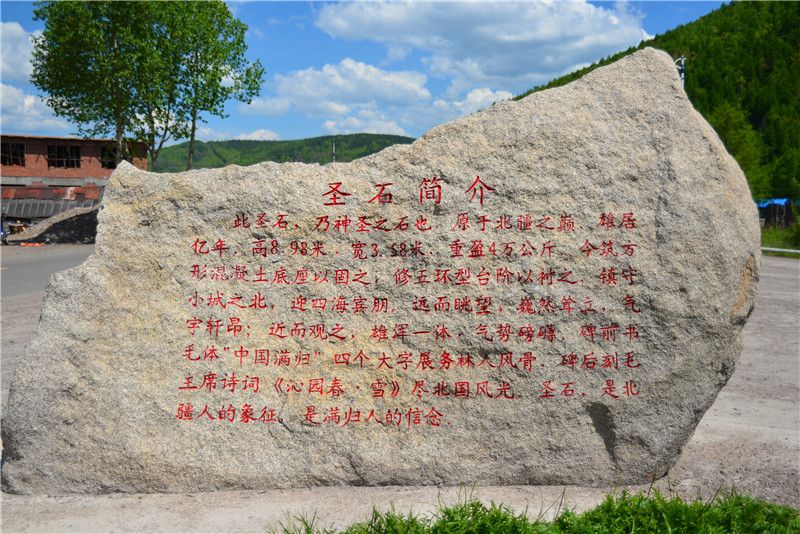 圣石简介
此圣石，乃神圣之石也 原于北疆之巅 雄居
亿年，高8.98米，宽3.58米，重盈4万公斤 今筑方
形混凝土底座以固之，修五环型台阶以衬之，镇守
小城之北，迎四海宾朋，远而眺望，巍然耸立，气
宇轩昂；近而观之，雄浑一体，气势磅礴，碑前书
毛体“中国满归”四个大字展务林人风骨，碑后刻毛
主席诗词《沁园春·雪》尽北国风光，圣石，是北
疆人的象征，是满归人的信念。